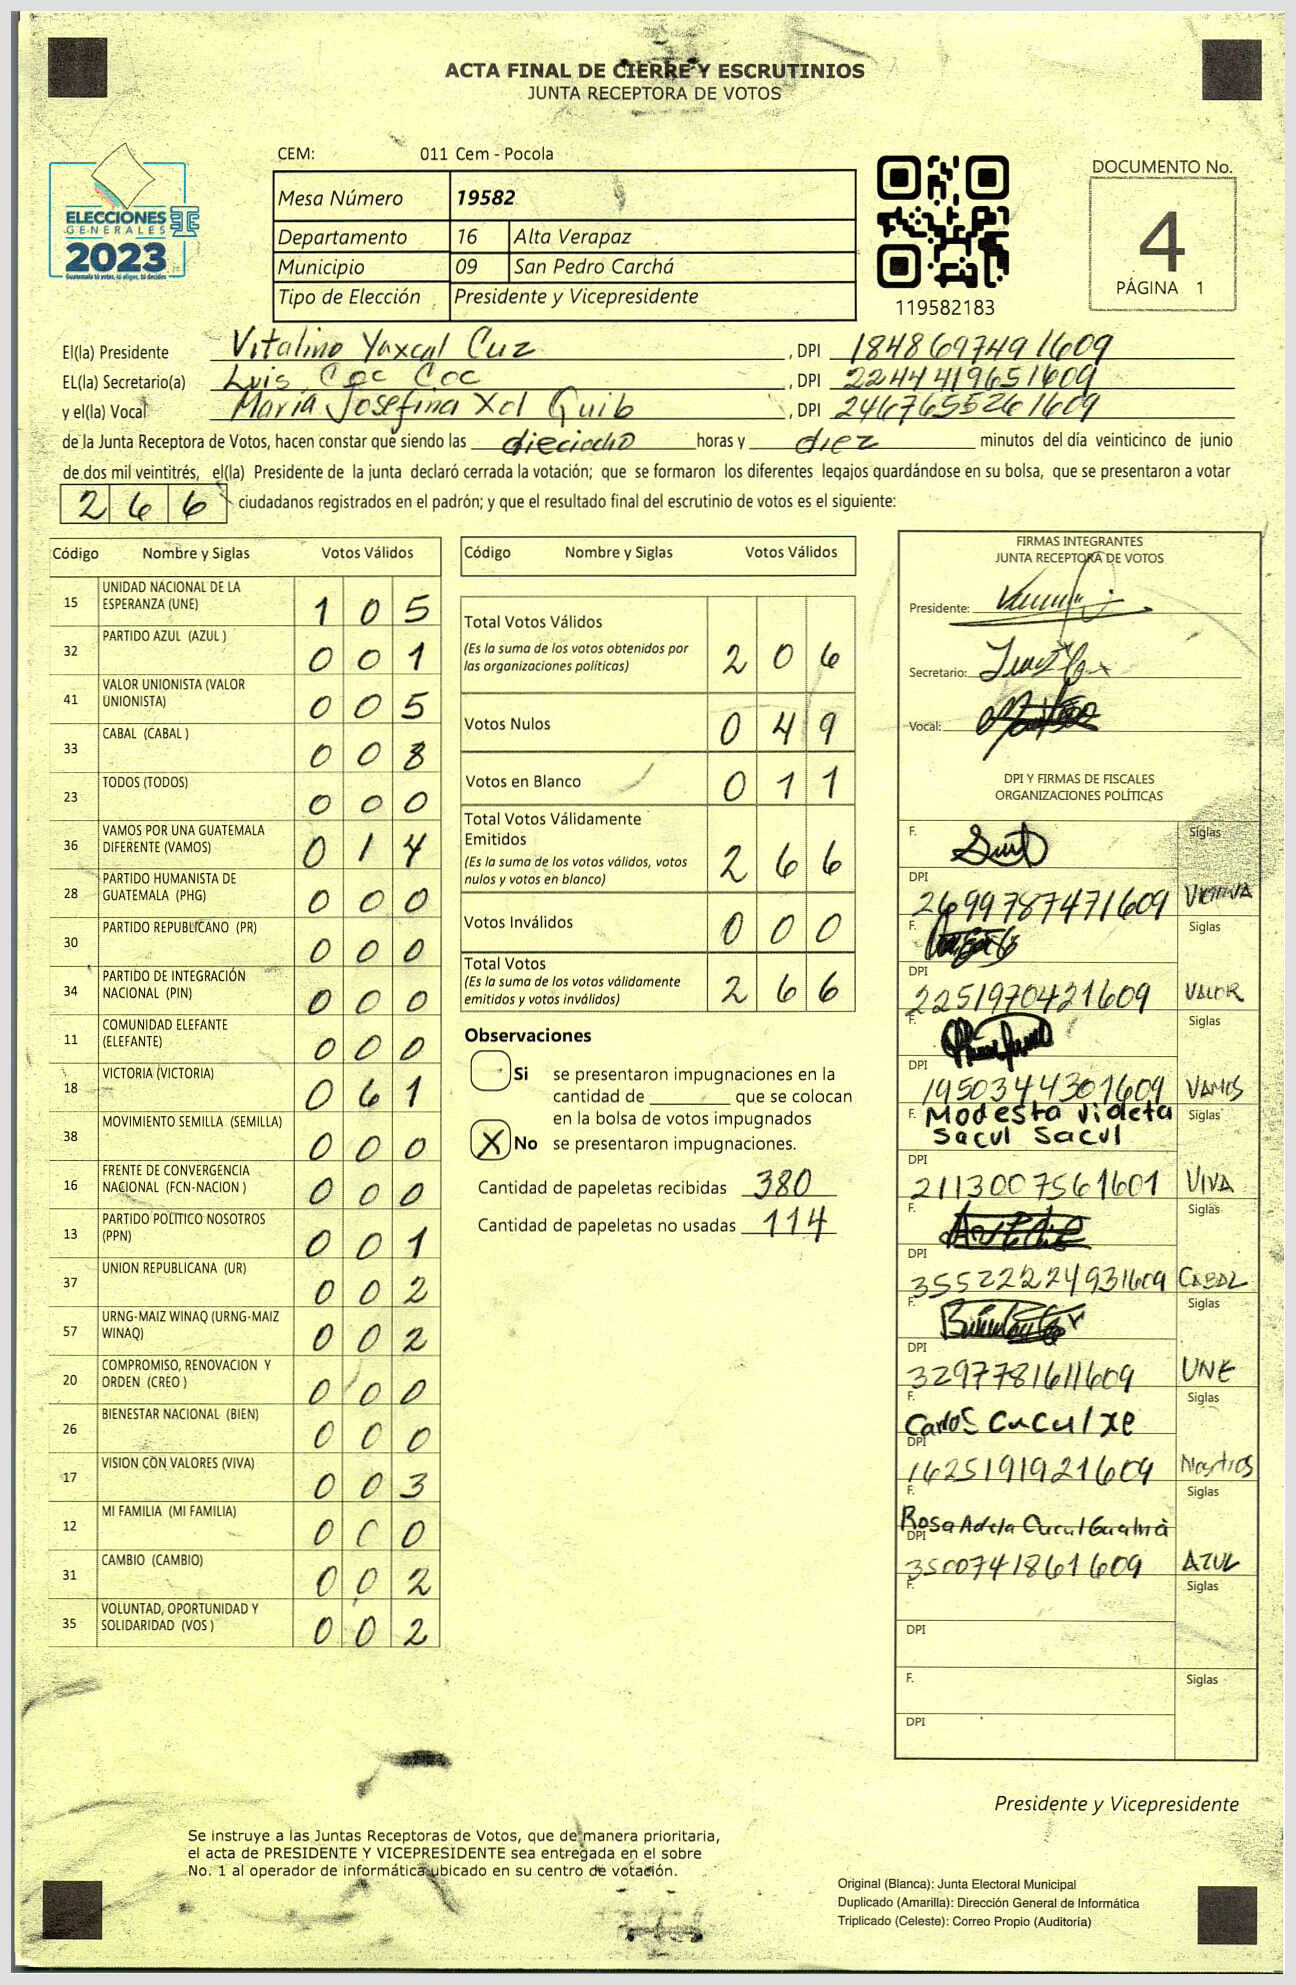 ACTA FINAL DE CIERRE Y ESCRUTINIOS
JUNTA RECEPTORA DE VOTOS
ELECCIONES
GENERALES
2023
Guatemala tú votas, tú eliges, tú decides
CEM: 011 Cem - Pocola
Mesa Número 19582
Departamento 16 Alta Verapaz
Municipio 09 San Pedro Carchá
Tipo de Elección Presidente y Vicepresidente
119582183
DOCUMENTO No.
4
PÁGINA 1
El(la) Presidente Vitalino Yaxcal Cuz , DPI 1848697491609
EL(la) Secretario(a) Luis Coc Coc , DPI 2244419651609
y el(la) Vocal María Josefina Xol Quib , DPI 2467655261609
de la Junta Receptora de Votos, hacen constar que siendo las dieciocho horas y diez minutos del día veinticinco de junio
de dos mil veintitrés, el(la) Presidente de la junta declaró cerrada la votación; que se formaron los diferentes legajos quardándose en su bolsa, que se presentaron a votar
266 ciudadanos registrados en el padrón; y que el resultado final del escrutinio de votos es el siguiente:
Código Nombre y Siglas Votos Válidos
15 UNIDAD NACIONAL DE LA
ESPERANZA (UNE) 1 0 5
32 PARTIDO AZUL (AZUL ) 0 0 1
41 VALOR UNIONISTA (VALOR
UNIONISTA) 0 0 5
33 CABAL (CABAL ) 0 0 8
23 TODOS (TODOS) 0 0 0
36 VAMOS POR UNA GUATEMALA
DIFERENTE (VAMOS) 0 1 4
28 PARTIDO HUMANISTA DE
GUATEMALA (PHG) 0 0 0
30 PARTIDO REPUBLICANO (PR) 0 0 0
34 PARTIDO DE INTEGRACIÓN
NACIONAL (PIN) 0 0 0
11 COMUNIDAD ELEFANTE
(ELEFANTE) 0 0 0
18 VICTORIA (VICTORIA) 0 6 1
38 MOVIMIENTO SEMILLA (SEMILLA) 0 0 0
16 FRENTE DE CONVERGENCIA
NACIONAL (FCN-NACION ) 0 0 0
13 PARTIDO POLITICO NOSOTROS
(PPN) 0 0 1
37 UNION REPUBLICANA (UR) 0 0 2
57 URNG-MAIZ WINAQ (URNG-MAIZ
WINAQ) 0 0 2
20 COMPROMISO, RENOVACION Y
ORDEN (CREO ) 0 0 0
26 BIENESTAR NACIONAL (BIEN) 0 0 0
17 VISION CON VALORES (VIVA) 0 0 3
12 MI FAMILIA (MI FAMILIA) 0 0 0
31 CAMBIO (CAMBIO) 0 0 2
35 VOLUNTAD, OPORTUNIDAD Y
SOLIDARIDAD (VOS ) 0 0 2
Código Nombre y Siglas Votos Válidos
Total Votos Válidos
(Es la suma de los votos obtenidos por
las organizaciones políticas) 2 0 6
Votos Nulos 0 4 9
Votos en Blanco 0 1 1
Total Votos Válidamente
Emitidos
(Es la suma de los votos válidos, votos
nulos y votos en blanco) 2 6 6
Votos Inválidos 0 0 0
Total Votos
(Es la suma de los votos válidamente
emitidos y votos inválidos) 2 6 6
Observaciones
Si se presentaron impugnaciones en la
cantidad de ________ que se colocan
en la bolsa de votos impugnados
X No se presentaron impugnaciones.
Cantidad de papeletas recibidas 380
Cantidad de papeletas no usadas 114
FIRMAS INTEGRANTES
JUNTA RECEPTORA DE VOTOS
Presidente:
Secretario:
Vocal:
DPI Y FIRMAS DE FISCALES
ORGANIZACIONES POLÍTICAS
F. Siglas
DPI
2699787471609
F. Siglas
DPI
2251970421609 VALOR
F. Siglas
DPI
1950344301609 VAMOS
F. Modesta Violeta Siglas
Sacul Sacul
DPI
2113007561601 VIVA
F. Siglas
DPI
35522224931609 CABAL
F. Siglas
DPI
3297781611609 UNE
F. Siglas
Carlos Cucul Xe
DPI
1625191921609
F. Siglas
Rosa Adela Cucul
DPI
3500741861609 AZUL
F. Siglas
DPI
F. Siglas
DPI
Presidente y Vicepresidente
Se instruye a las Juntas Receptoras de Votos, que de manera prioritaria,
el acta de PRESIDENTE Y VICEPRESIDENTE sea entregada en el sobre
No. 1 al operador de informática ubicado en su centro de votación.
Original (Blanca): Junta Electoral Municipal
Duplicado (Amarilla): Dirección General de Informática
Triplicado (Celeste): Correo Propio (Auditoría)